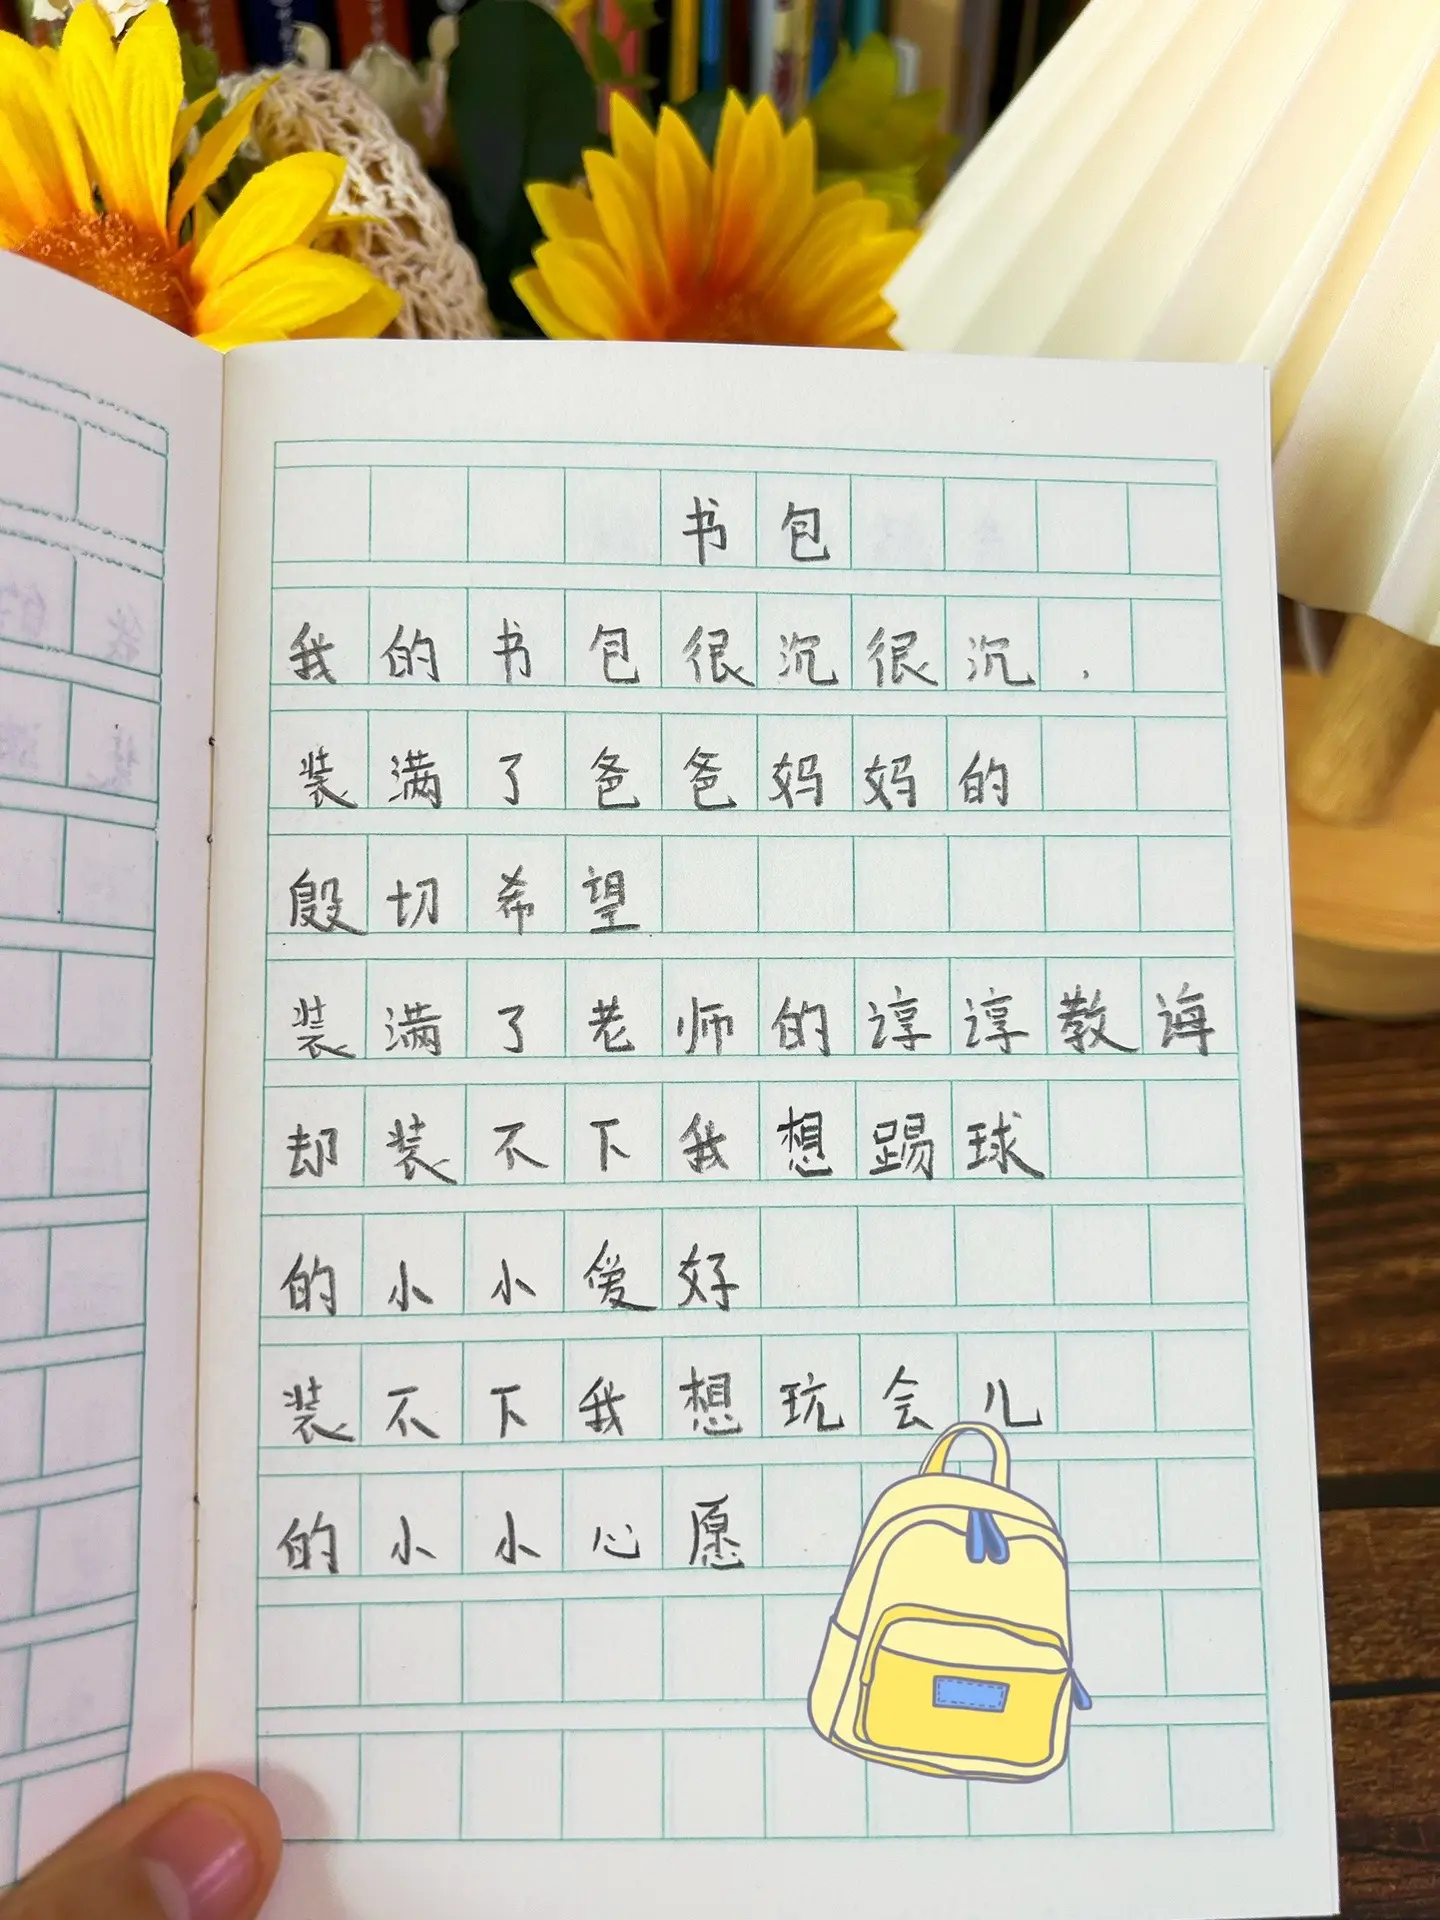 书包
我的书包很沉很沉.
装满了爸爸妈妈的
殷切希望
装满了老师的谆谆教诲
却装不下我想踢球
的小小爱好
装不下我想玩会儿
的小小心愿